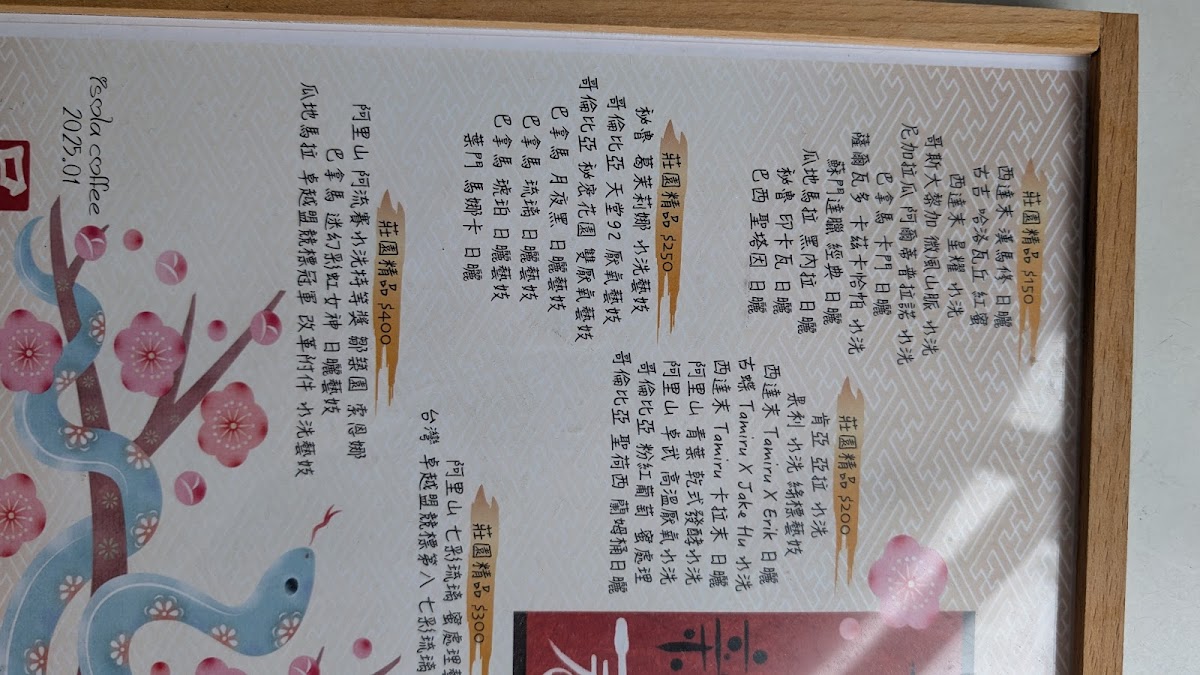 莊園精品 $150
西達末 漢馬修 日曬
古吉 哈洛瓦丘 紅蜜
西達末 星耀 水洗
哥斯大黎加 微風山脈 水洗
尼加拉瓜 阿爾蒂普拉諾 水洗
巴拿馬 卡門 日曬
薩爾瓦多 卡茲卡恰帕 水洗
蘇門達臘 經典 日曬
瓜地馬拉 黑內拉 日曬
祕魯 印卡瓦 日曬
巴西 聖塔因 日曬
莊園精品 $200
肯亞 亞拉 水洗
果利 水洗 綠標藝妓
西達末 Tamiru X Erik 日曬
古蝶 Tamiru X Jake Hu 水洗
西達末 Tamiru 卡拉末 日曬
阿里山 青葉 乾式發酵水洗
阿里山 卓武 高溫厭氧水洗
哥倫比亞 粉紅葡萄 蜜處理
哥倫比亞 聖荷西 蘭姆桶日曬
莊園精品 $250
祕魯 葛茱莉娜 水洗藝妓
哥倫比亞 天堂92 厭氧藝妓
哥倫比亞 祕密花園 雙厭氧藝妓
巴拿馬 月夜黑 日曬藝妓
巴拿馬 琉璃 日曬藝妓
巴拿馬 琥珀 日曬藝妓
葉門 馬娜卡 日曬
莊園精品 $300
阿里山 七彩琉璃 蜜處理
台灣 卓越盟競標第八 七彩琉璃
莊園精品 $400
阿里山 阿流賽水洗特等獎 鄒築園 索恩娜
巴拿馬 迷幻彩虹女神 日曬藝妓
瓜地馬拉 卓越盟競標冠軍 改革附件 水洗藝妓
isola coffee
2025.01